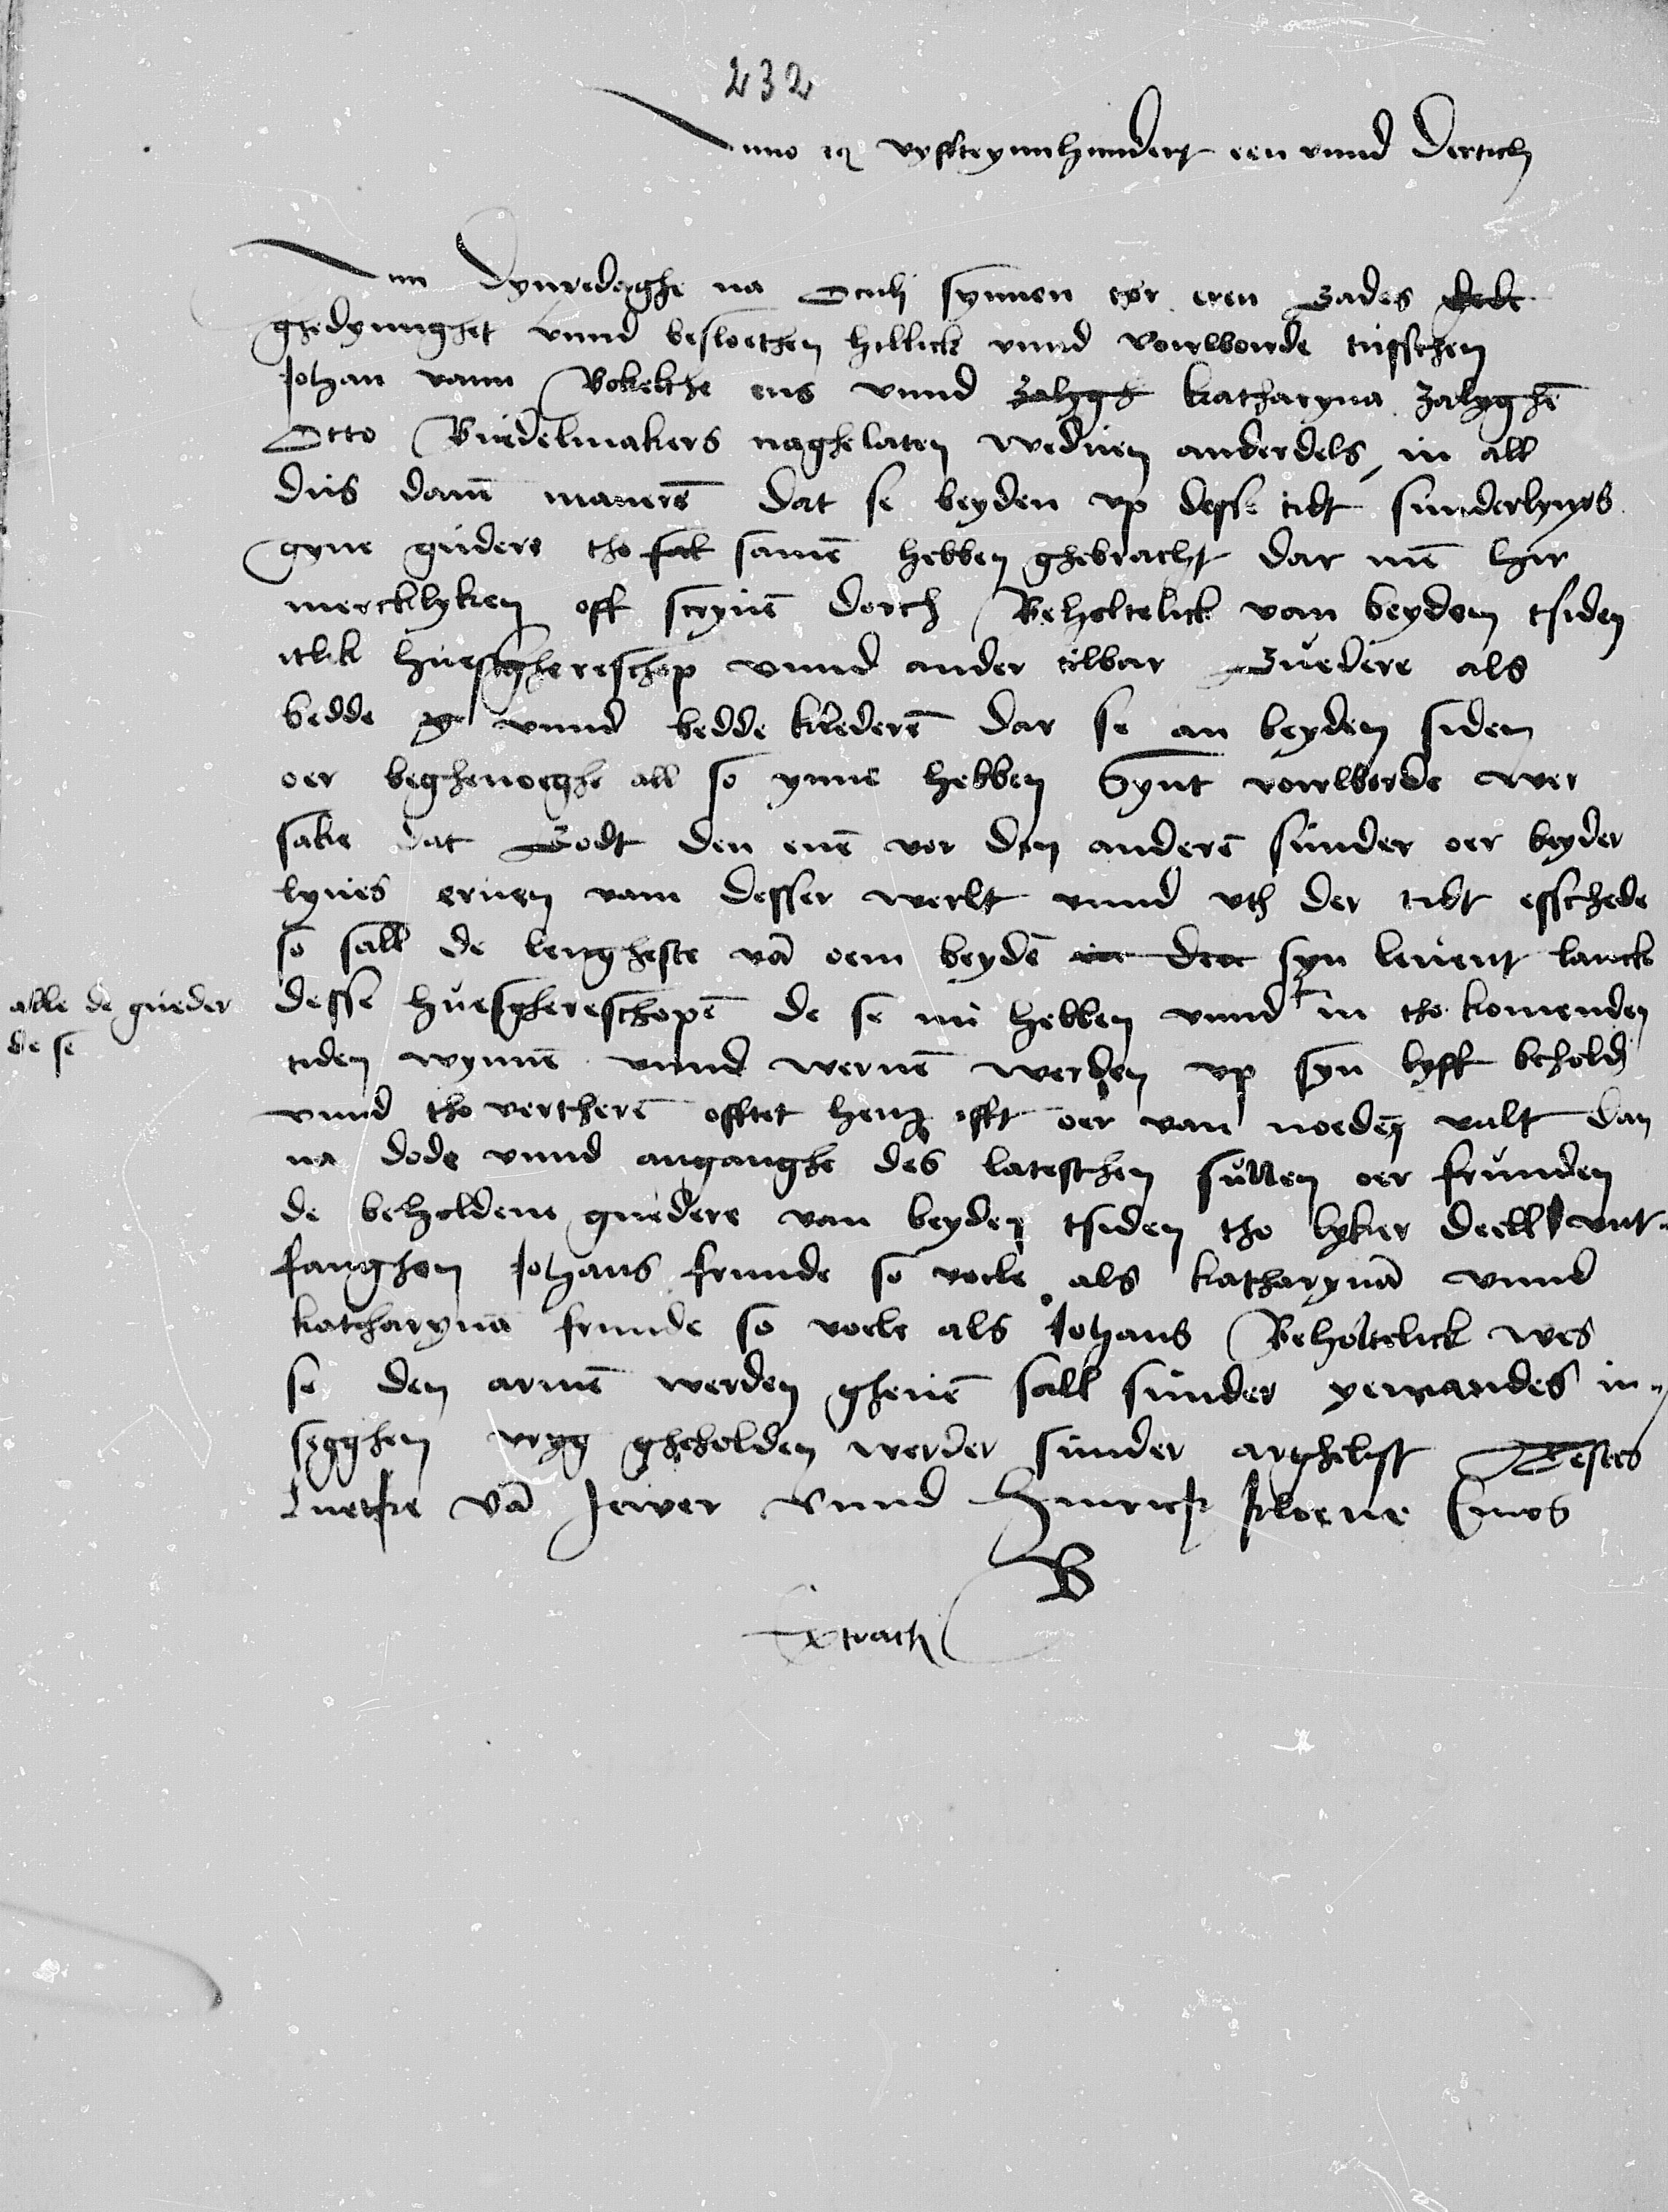 232
Anno etc vyffteynnhundert een vnnd dertich
Am dynxedaghe na Oculi synnen tor eren Gades
ghedynnghet vnnd besloethen hillick vnnd vorwborde tusschen
Johan vann Bokelthe ens vnnd zalygs katharyna zalyghē
Otto Buedelmakers naghelaten wedúen anderdels in all
dús danē manerē dat se beyden vp desse tidt súnderlynxs
gyne gúdere tho sak samē hebben ghebracht dar mē hir
mercklyken off scryuē dorch Beholtelick van beyden tsiden
itlik húesghereschop vnnd ander tilbar Gúedere als
bedde vnnd bedde klederē dar se an beyden siden
oer beghenoeghe all so ynne hebben Synt vorwborde wer
sake dat Godt den enē vor den anderē súnder oer beyder
lyues eruen vam desser werlt vnnd vth der tidt esschede
so sall de lengheste vā oem beydē syn leuent lanck
desse húesghereschopē de se nú hebben vnnd in tho komenden
alle de gúeder
de se
tiden wynnē vnnd weruē werden vp syn lyff behold
vnnd tho vertherē offtet hem efft oer van noeden valt dan
na dode vnnd anganghe des latesthen súllen oer frúnden
de beholdene gúedere van beyden tsiden tho lyker deell vnt-
fanghen Johans frunde so voele als katharynā vnnd
katharynā frunde so voele als Johans Beholtelick wes
se den armē werden gheuē sall súnder yemandes in-
segghen vryg gheholden werder súnder arghelyst Testes
Luetke vā Jewer vnnd Hinrick kloene Cives
B
Extracta